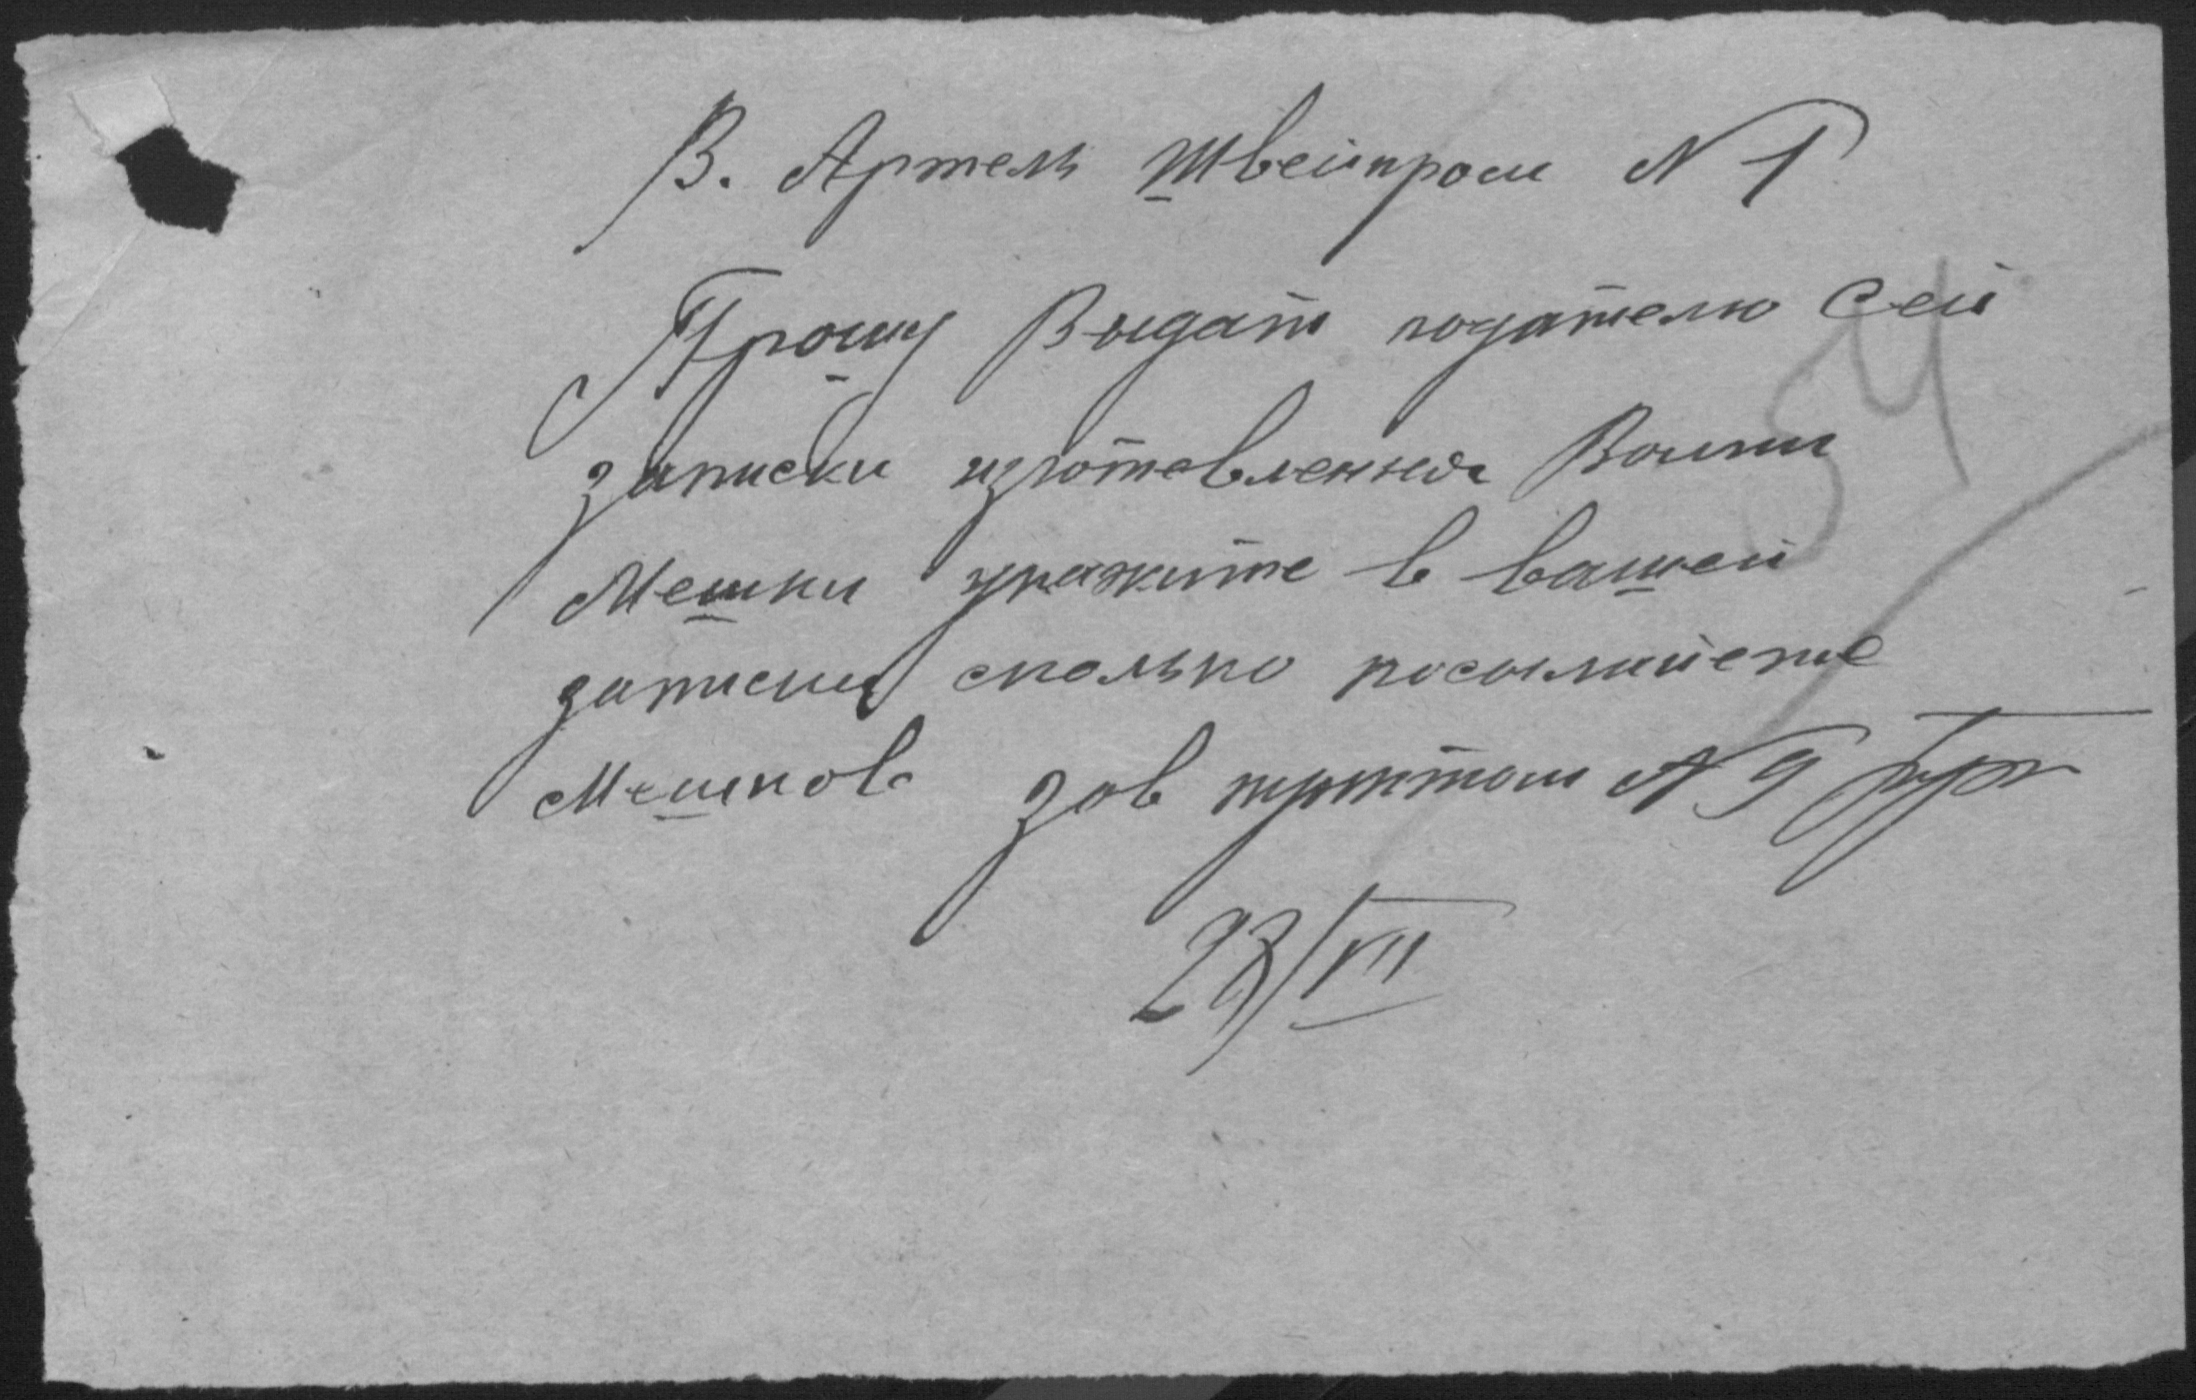 В. Артель Швейпром N 1
Прошу Выдать подателю Сей
записки изготовленные Вами
Мешки укажите в вашей
записки сколько посылайете
Мешков зав пунктом N 9
23/VII
54